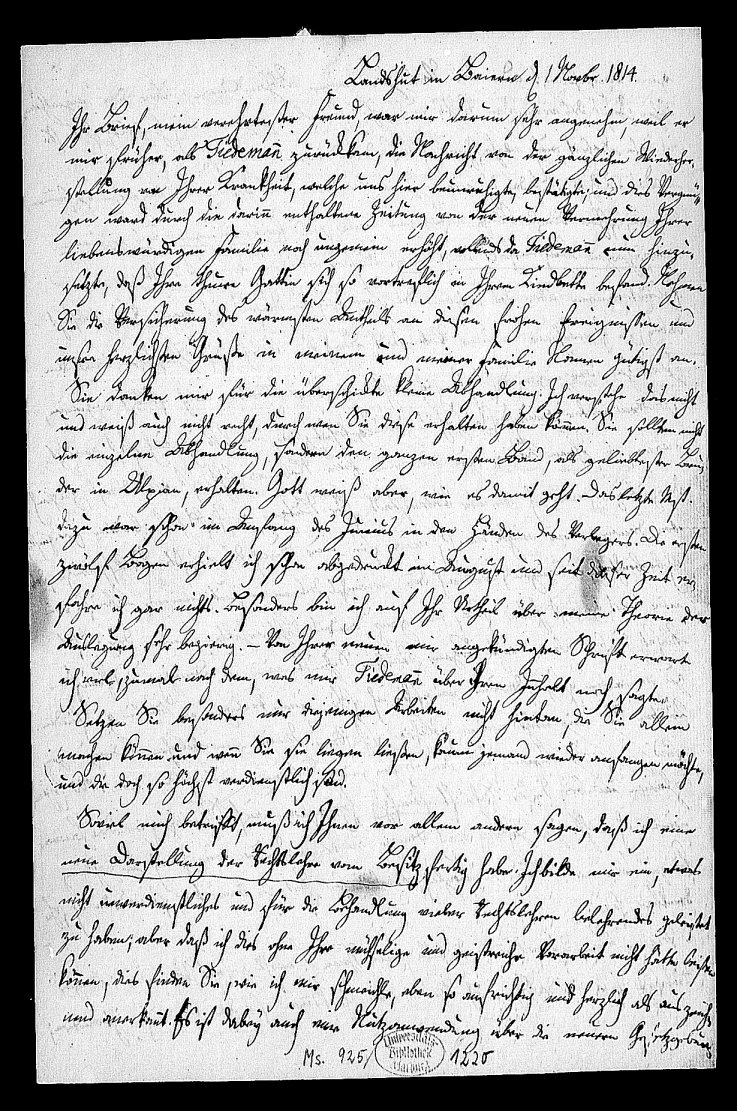 Landshut in Baiern d. 1 Novbr. 1814.
Ihr Brief, mein verehrtester Freund, war mir darum sehr angenehm, weil er
mir früher, als Tiedemañ zurückkam, die Nachricht von der gänzlichen Wiederher-
stellung von Ihrer Krankheit, welche uns hier beunruhigte, bestätigte, und dies Vergnü-
gen ward durch die darin enthaltene Zeitung von der neuen Vermehrung Ihrer
liebenswürdigen Familie noch ungemein erhöht, vollends da Tiedemañ nun hinzu-
setzte, daß Ihre theure Gattin sich so vortreflich in Ihrem Kindbette befand. Nehmen
Sie die Versicherung des wärmsten Antheils an diesen frohen Ereignissen und
unsre herzlichsten Grüße in meinem und meiner Familie Namen gütigst an.
Sie danken mir für die überschickte kleine Abhandlung. Ich verstehe das nicht
und weiß auch nicht recht, durch wen Sie diese erhalten haben können. Sie sollten nicht
die einzelne Abhandlung, sondern den ganzen ersten Band, als geliebtester Bru-
der in Ulpian, erhalten. Gott weiß aber, wie es damit geht. Das letzte Mst.
dazu war schon im Anfang des Junius in den Händen des Verlegers. Die ersten
zwölf Bogen erhielt ich schon abgedruckt im August und seit dieser Zeit er-
fahre ich gar nichts. Besonders bin ich auf Ihr Urtheil über meine Theorie der
Auslegung sehr begierig. – Von Ihrer neuen mir angekündigten Schrift erwarte
ich viel, zumal nach dem, was mir Tiedemañ über Ihren Inhalt noch sagte.
Setzen Sie besonders nur diejenigen Arbeiten nicht hintan, die Sie allein
machen können und wenn Sie sie liegen ließen, kaum jemand wieder anfangen möchte,
und die doch so höchst verdienstlich sind.
Soviel mich betrifft, muß ich Ihnen vor allem andern sagen, daß ich eine
neue Darstellung der Rechtslehre vom Besitz fertig habe. Ich bilde mir ein, etwas
nicht unverdienstliches und für die Behandlung vieler Rechtslehren belehrendes geleistet
zu haben; aber daß ich dies ohne Ihre mühselige und geistreiche Vorarbeit nicht hätte leisten
können, dies finden Sie, wie ich mir schmeichle, eben so aufrichtig und herzlich als ausgezeich-
und anerkañt. Es ist dabey auch eine Nutzanwendung über die neuern Gesetzgebung
Ms. 925/1220
Universitäts-
Bibliothek
Marburg